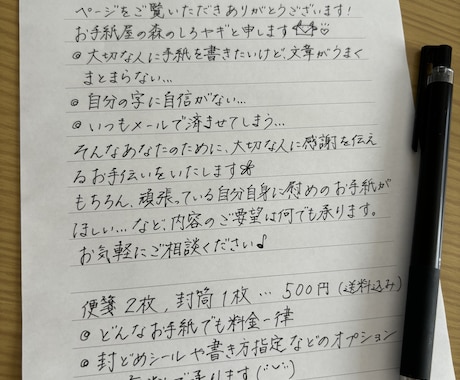 ページをご覧いただきありがとうございます!
お手紙屋の森のしろヤギと申します
◎大切な人に手紙を書きたいけど、文章がうまく
まとまらない…
◎自分の字に自信がない…
◎いつもメールで済ませてしまう…
そんなあなたのために、大切な人に感謝を伝え
るお手伝いをいたします
もちろん、頑張っている自分自身に慰めのお手紙が
ほしい…など、内容のご要望は何でも承ります。
お気軽にご相談ください♪
便箋2枚、封筒1枚…500円(送料込み)
◎どんなお手紙でも料金一律
◎封どめシールや書き方指定などのオプション
で承ります